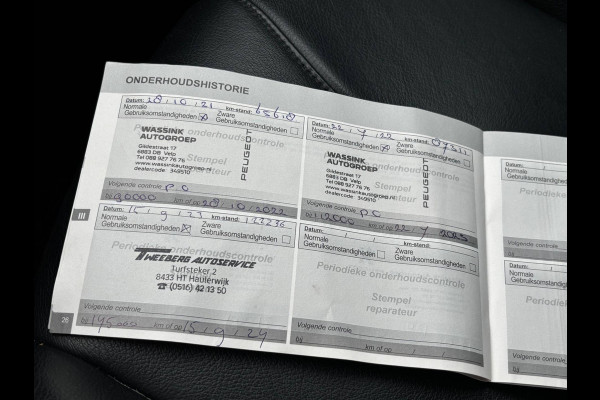 ONDERHOUDSHISTORIE
Datum: 28, 10, 21 km-stand:
Normale Gebruiksomstandigheden Zware Gebruiksomstandigheden
Periodieke onderhoudscontrole
WASSINK
AUTOGROEP
PEUGEOT
Gildestraat 17
6883 DB Velp
Tel 088 927 76 76
www.wassinkautogroep.nl
dealercode: 349510
Stempel
reparateur
Volgende controle P.O
bij 90000 km of op 28, 10, 2022
Datum: 22, 7, 22 km-stand:
Normale Gebruiksomstandigheden Zware Gebruiksomstandigheden
Periodieke onderhoudscontrole
WASSINK
AUTOGROEP
PEUGEOT
Gildestraat 17
6883 DB Velp
Tel 088 927 76 76
www.wassinkautogroep.nl
dealercode: 349510
Stempel
reparateur
Volgende controle P.O
km of op 22, 7, 2023
III
Datum: 15, 9, 23 km-stand: 123236
Normale Gebruiksomstandigheden Zware Gebruiksomstandigheden
Periodieke onderhoudscontrole
TWEEBERG AUTOSERVICE
Turfsteker 2
8433 HT Haulerwijk
☎ (0516) 42 13 50
Volgende controle
bij 145000 km of op 15, 9, 24
Datum: / / km-stand:
Normale Gebruiksomstandigheden Zware Gebruiksomstandigheden
Periodieke onderhoudscontrole
Stempel
reparateur
Volgende controle
bij km of op / /
26
Datum:
Normale
Gebruiksomstandigheden
Volgende controle
bij
Datum:
Normale
Gebruiksomstandigheden
Volgende controle
bij